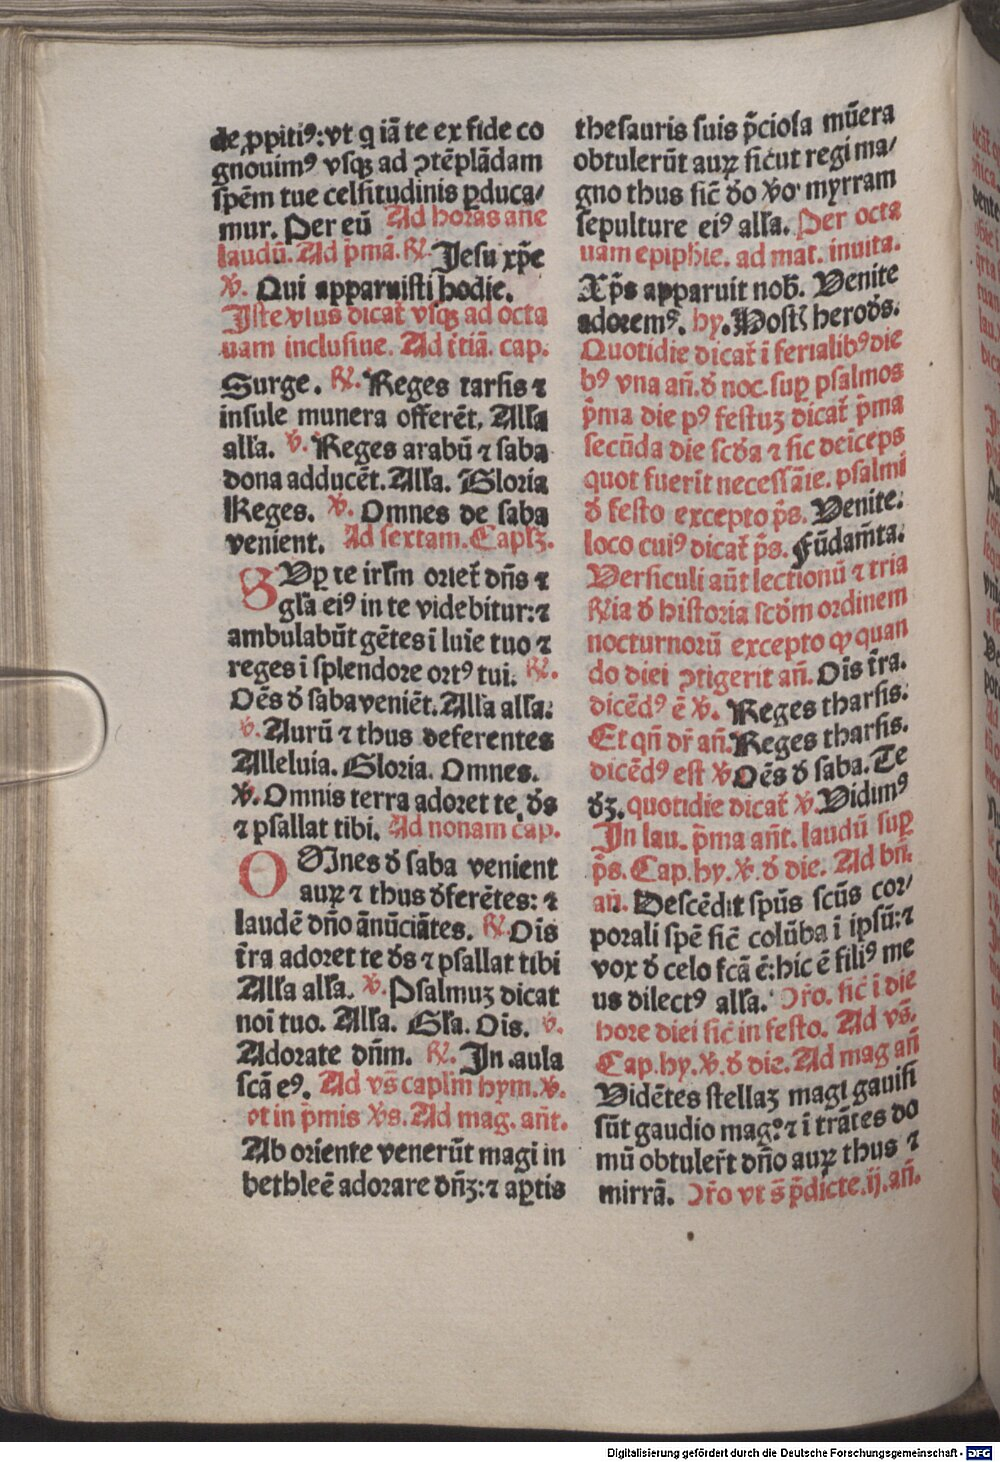 de ꝓpitiꝰ: vt q iā te ex fide co
gnouimꝰ vsqꝫ ad ↄtēplādam
spēm tue celsitudinis ꝑduca⸗
mur. Per eū Ad horas añe
laudū. Ad p̄mā. ℟. Jesu xp̄e
℣. Qui apparuisti hodie.
Jste v̄sus dicat̄ vsqꝫ ad octa
uam inclusiue. Ad t̄tiā. cap.
Surge. ℟. Reges tarsis ⁊
insule munera offerēt, Alľa
alľa. ℣. Reges arabū ⁊ saba
dona adducēt. Alľa. Gloria
Reges. ℣. Omnes de saba
venient. Ad sextam. Capľꝫ.
SVꝑ te irľm oriet̄ dn̄s ⁊
gľa eiꝰ in te videbitur: ⁊
ambulabūt gētes ī luīe tuo ⁊
reges ī splendore ortꝰ tui. ℟.
Oēs ꝺ̄ saba veniēt. Alľa alľa.
℣. Aurū ⁊ thus deferentes
Alleluia. Gloria. Omnes.
℣. Omnis terra adoret te ꝺ̄s
⁊ psallat tibi. Ad nonam cap.
OMnes ꝺ̄ saba venient
auꝝ ⁊ thus ꝺ̄ferētes: ⁊
laudē dn̄o ānūciātes. ℟. Ois
t̄ra adoret te ꝺ̄s ⁊ psallat tibi
Alľa alľa. ℣. Psalmuꝫ dicat
noī tuo. Alľa. Gľa. Ois. ℣.
Adorate dn̄m. ℟. Jn aula
scā eꝰ. Ad vs̄ caplīm hym. ℣.
vt in p̄mis v̄s. Ad mag. añt.
Ab oriente venerūt magi in
bethleē adorare dn̄ꝫ: ⁊ aꝑtis
thesauris suis p̄ciosa mūera
obtulerūt auꝝ sicut regi ma⸗
gno thus sic̄ ꝺ̄o v̄o myrram
sepulture eiꝰ alľa. Per octa
uam epiphie. ad mat. inuita.
Xp̄s apparuit nob̄. Venite
adoremꝰ. hy. Hostꝭ heroꝺ̄s.
Quotidie dicat̄ ī ferialibꝰ die
bꝰ vna añ. ꝺ̄ noc. suꝑ psalmos
p̄ma die pꝰ festuꝫ dicat̄ p̄ma
secūda die scꝺ̄a ⁊ sic deīceps
quot fuerit necessāie. psalmi
ꝺ̄ festo excepto p̄s. Venite.
loco cuiꝰ dicat̄ p̄s. Fūdam̄ta.
Versiculi aūt lectionū ⁊ tria
℟ia ꝺ̄ historia scꝺ̄m ordinem
nocturnorū excepto ꝙ quan
do diei ↄtigerit añ. Ois t̄ra.
dicēdꝰ ē ℣. Reges tharsis.
Et qn̄ dr̄ añ. Reges tharsis.
dicēdꝰ est ℣ Oēs ꝺ̄ saba. Te
ꝺ̄ꝫ. quotidie dicat̄ ℣. Vidimꝰ
Jn lau. p̄ma añt. laudū suꝑ
p̄s. Cap. hy. ℣. ꝺ̄ die. Ad bn̄.
añ. Descēdit spūs scūs cor⸗
porali spē sic̄ colūba ī ipsū: ⁊
vox ꝺ̄ celo fcā ē: hic ē filiꝰ me
us dilectꝰ alľa. Or̄o. sic̄ ī die
hore diei sic̄ in festo. Ad vs̄.
Cap. hy. ℣. ꝺ̄ die. Ad mag añ
Vidētes stellaꝫ magi gauisi
sūt gaudio mag°. ⁊ ī trātes do
mū obtuler̄t dn̄o auꝝ thus ⁊
mirrā. Or̄o vt s̄ p̄dicte. ij. añ.
Digitalisierung gefördert durch die Deutsche Forschungsgemeinschaft - DFG